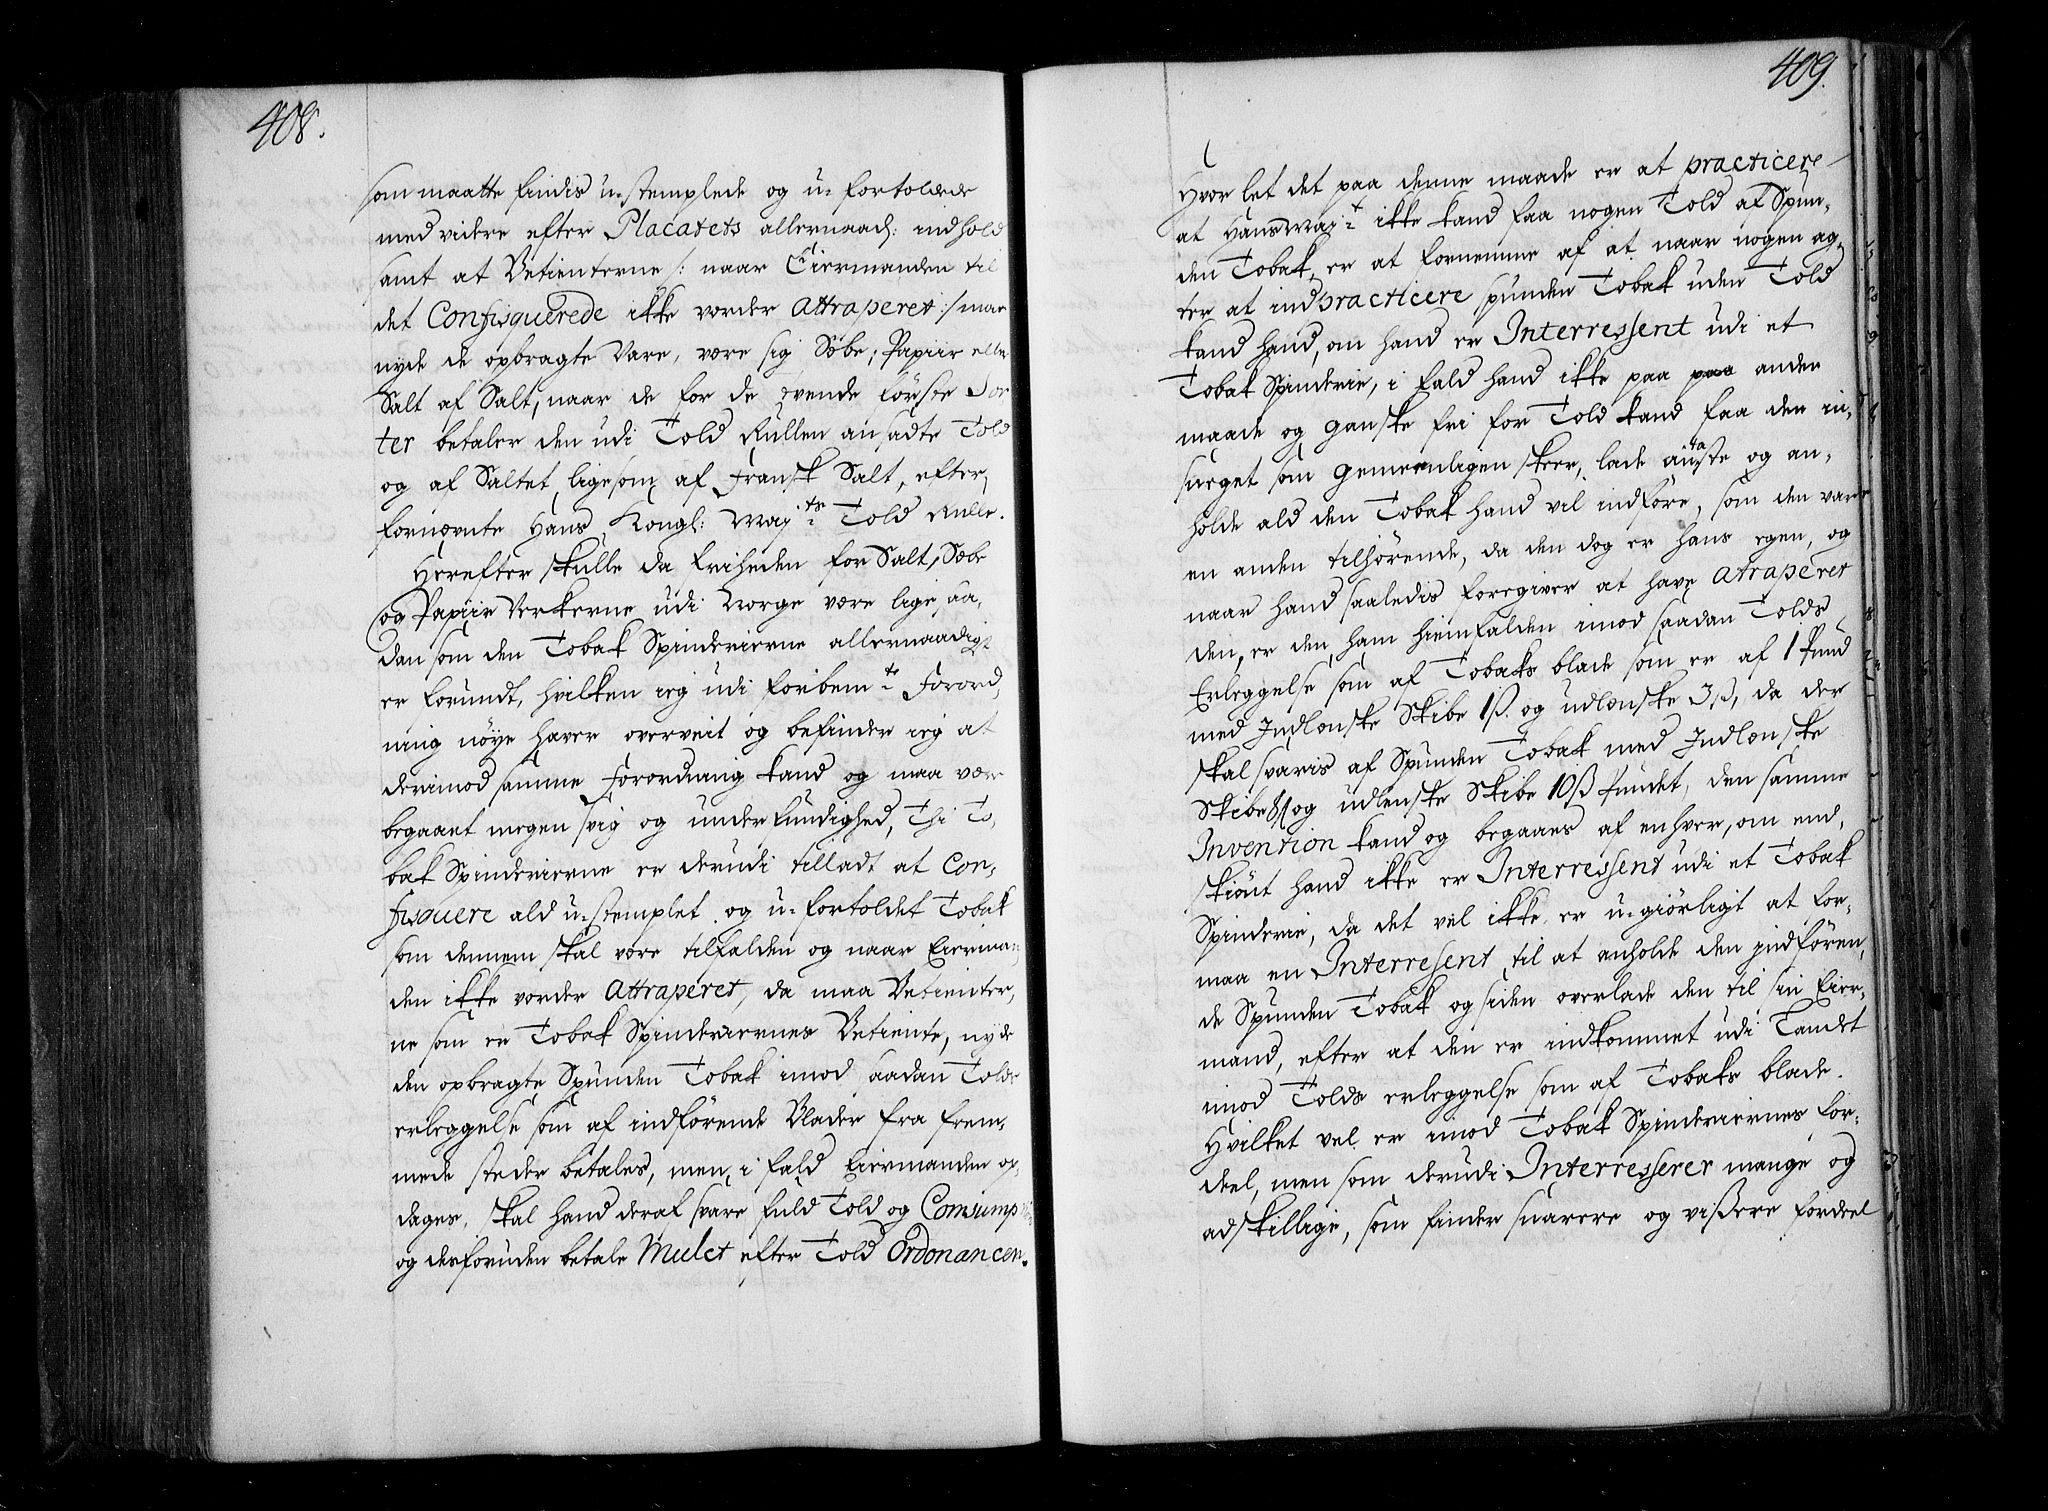 408.
som maatte findis u-stemplede og u-fortolede
med videre efter Placatets allernaad: indhold
samt at Betienterne /: naar Eiermanden til
det Confisquerede ikke vorder Attraperet :/ maa
nyde de opbragte Vare, være sig Sæbe, Papiir eller
Salt af Salt, naar de for de tvende første Sor
ter betaler den udi Told Rullen ansadte Told
og af Saltet ligesom af Fransk Salt, efter
fornævnte Hans Kongl: May:ts Told Rulle.
Herefter skulle da friheden for Salt, Sæbe
og Papiir Verkerne udi Norge være lige saa,
dan som den Tobak Spinderierne allernaadigst
er forundt, hvilken ieg udi forbem:te Forord,
ning nøye haver overveit og befinder ieg at
derimod samme Forordning kand og maa være
begaaet megen svig og underfundighed, Thi To,
bak Spinderierne er derudi tilladt at Con,
fisquere ald u-stemplet og u-fortoldet Tobak
som dennem skal være tilfalden og naar Eierman
den ikke vorder Attraperet, da maa Betienter,
ne som er Tobak Spinderiernes Betiente, nyde
den opbragte Spunden Tobak imod saadan Tolds
erleggelse som af indførende Blader fra frem,
mede steder betales, men i fald Eiermanden op,
dages, skal hand deraf svare fuld Told og Consumption
og desforuden betale Mulct efter Told Ordonancen.
409.
Hvor let det paa denne maade er at practicere
at Hans May:t ikke kand faa nogen Told af Spun,
den Tobak, er at fornemme af at naar nogen ag,
ter at indpracticere spunden Tobak uden Told
kand hand, om hand er Interressent udi et
Tobak Spinderie, i fald hand ikke paa paa anden
maade og ganske fri for Told kand faa den in,
surget som gemeenligen skeer, lade antaste og an,
holde ald den Tobak hand vil indføre, som den vare
en anden tilhørende, da den dog er hans egen, og
naar hand saaledis foregiver at have atraperet
den, er den ham hiemfalden imod saadan Tolds
Erleggelse som af Tobaks blade som er af 1 Pund
med Indlenske Skibe 1ß. og udlenske 3ß, da der
skal svaris af Spunden Tobak med Indlenske
Skibe 8ß og udlenske Skibe 10ß Pundet, den samme
Invention kand og begaaes af enhver, om end,
skiønt hand ikke er Interressent udi et Tobak
Spinderie, da det vel ikke er u-giørligt at for,
maa en Interresent til at anholde den indføren,
de Spunden Tobak og siden overlade den til sin Eier,
mand, efter at den er indkommet udi Landet
imod Tolds erleggelse som af Tobaks blade.
Hvilket vel er imod Tobak Spinderiernes for,
deel, men som derudi Interresserer mange og
adskillige, som finder snarere og vissere fordeel